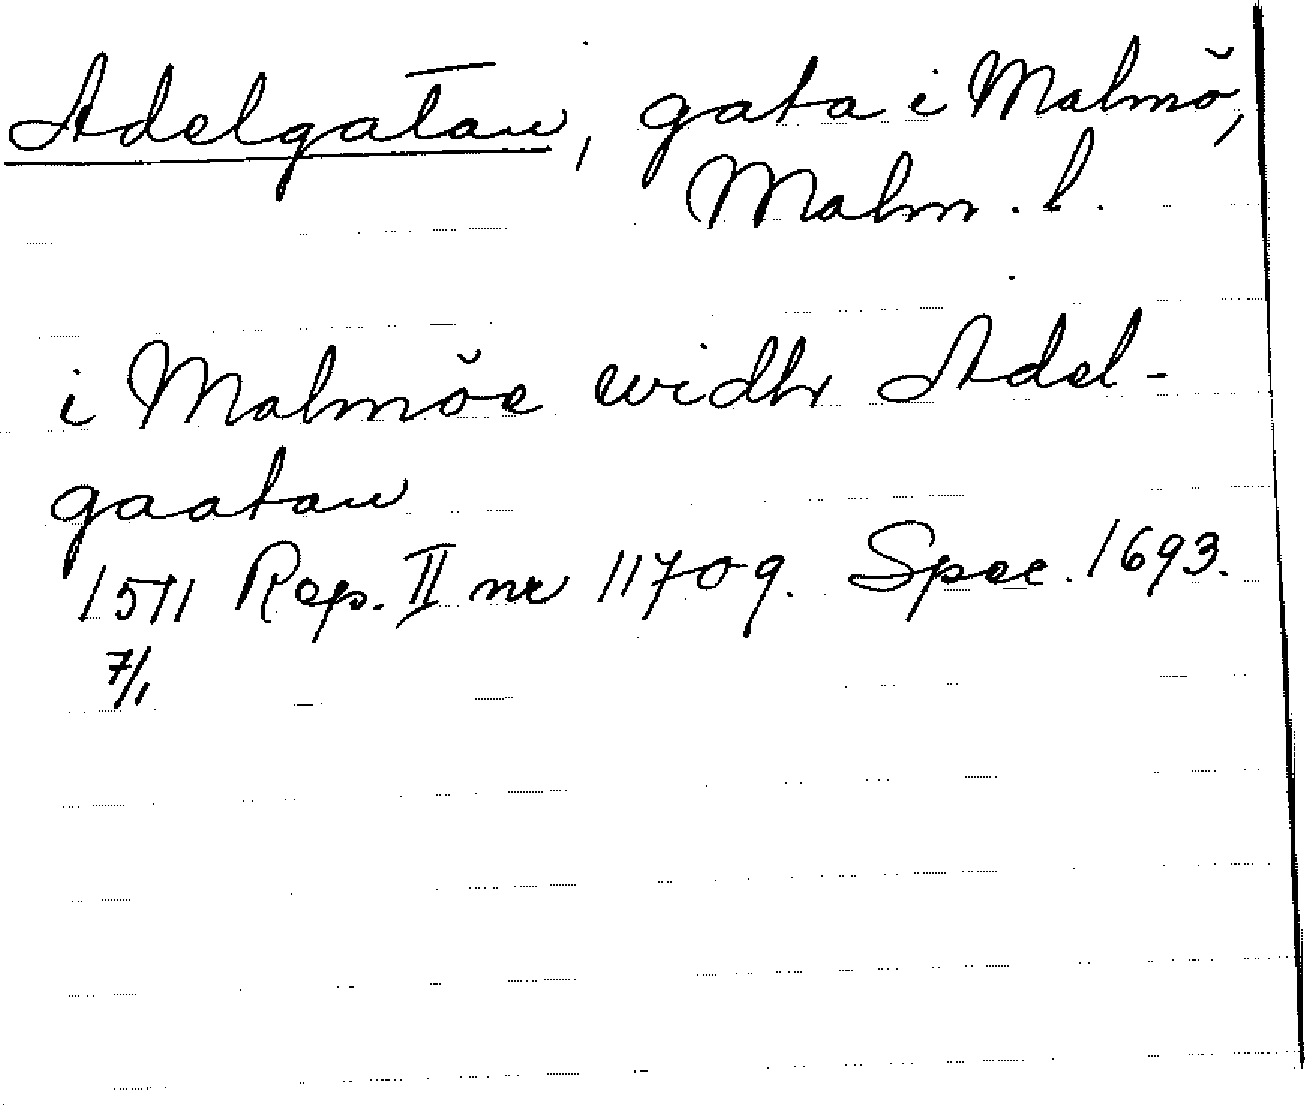 Adelgatan, gata i Malmö,
Malm. l.
i Malmöe widh Adel-
gaatan
1511 Rep. II nr 11709. Spec. 1693.
7/1